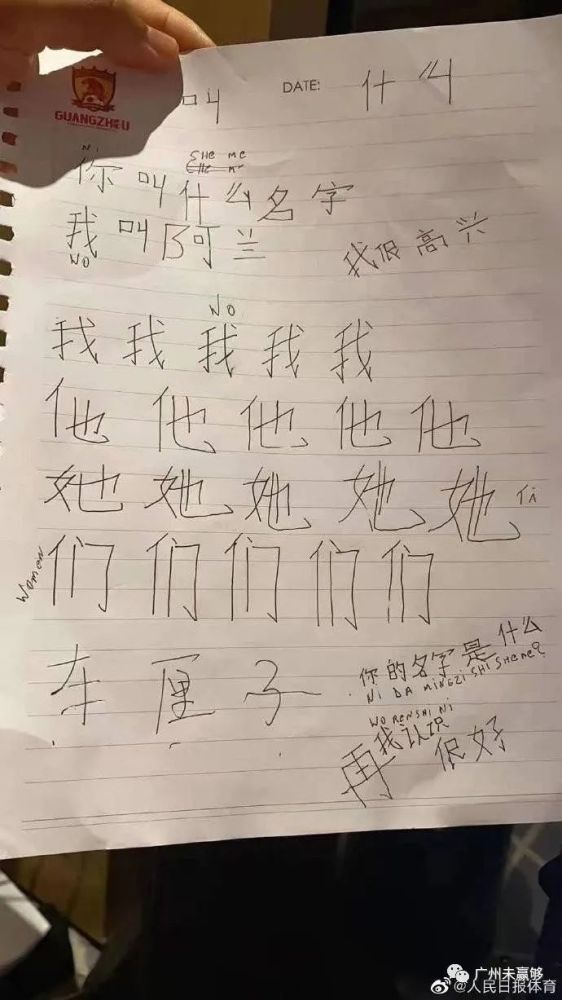 GUANGZHOU
叫
DATE:
什么
Ni
SHE ME
你叫什么名字
我叫阿兰
WO
我很高兴
WO
我我我我我
他他他他他
她她她她她
TA
women
们们们们们
车厘子
你的名字是什么
NI DA MINGZI SHI SHEME?
WO RENSHI NI
我认识
再
很好
广州未赢够
@人民日报体育